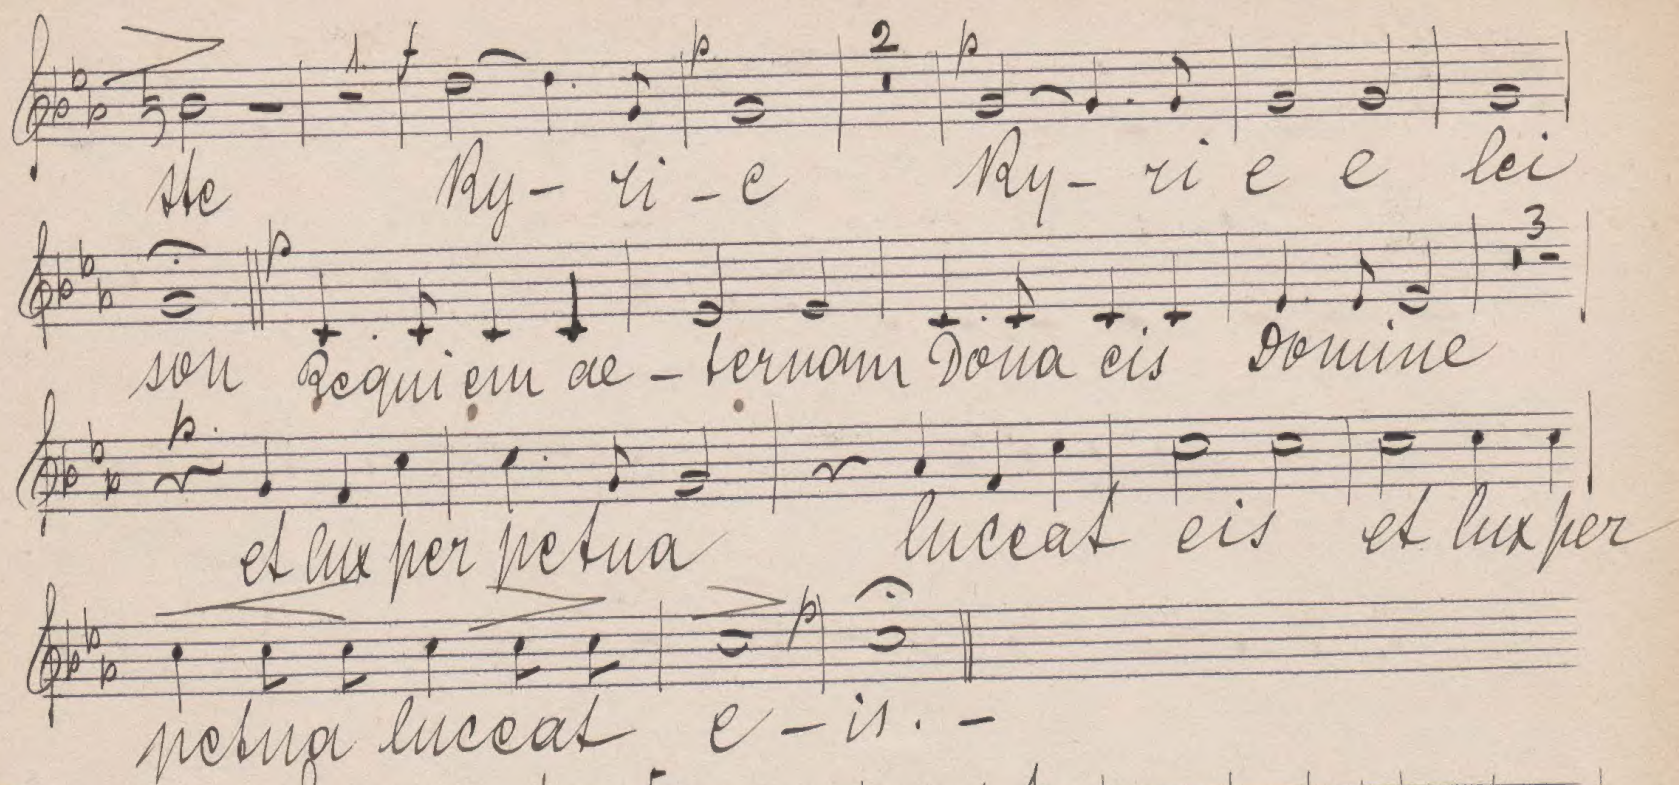 1. f p 2 p
ste Ky - ri - e Ky - ri e e lei
p 3
son Requiem ae - ternam Dona eis Domine
p.
et lux per petua luceat eis et lux per
p
petua luceat e - is. -